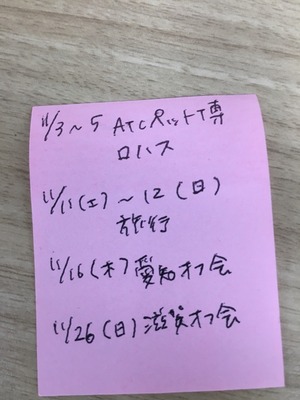 11/3～5 ATCRットT専
ロハス
11/11(土)～12(日)
旅行
11/16(木)愛知オフ会
11/26(日)滋賀オフ会